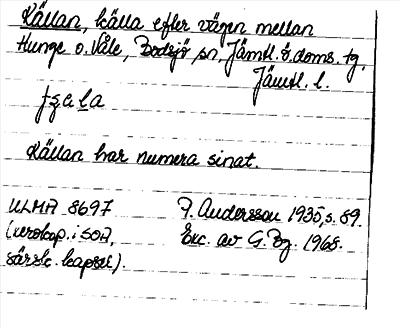 Källan, källa efter vägen mellan
Hunge o. Våle, Bodsjö sn, Jämtl. ö. doms. tg,
Jämtl. l.
Källan har numera sinat.
ULMA 8697 F. Andersson 1935, s. 89.
(xerokop. i SOA, Exc. av G. Bg. 1968.
särsk. kapsel).